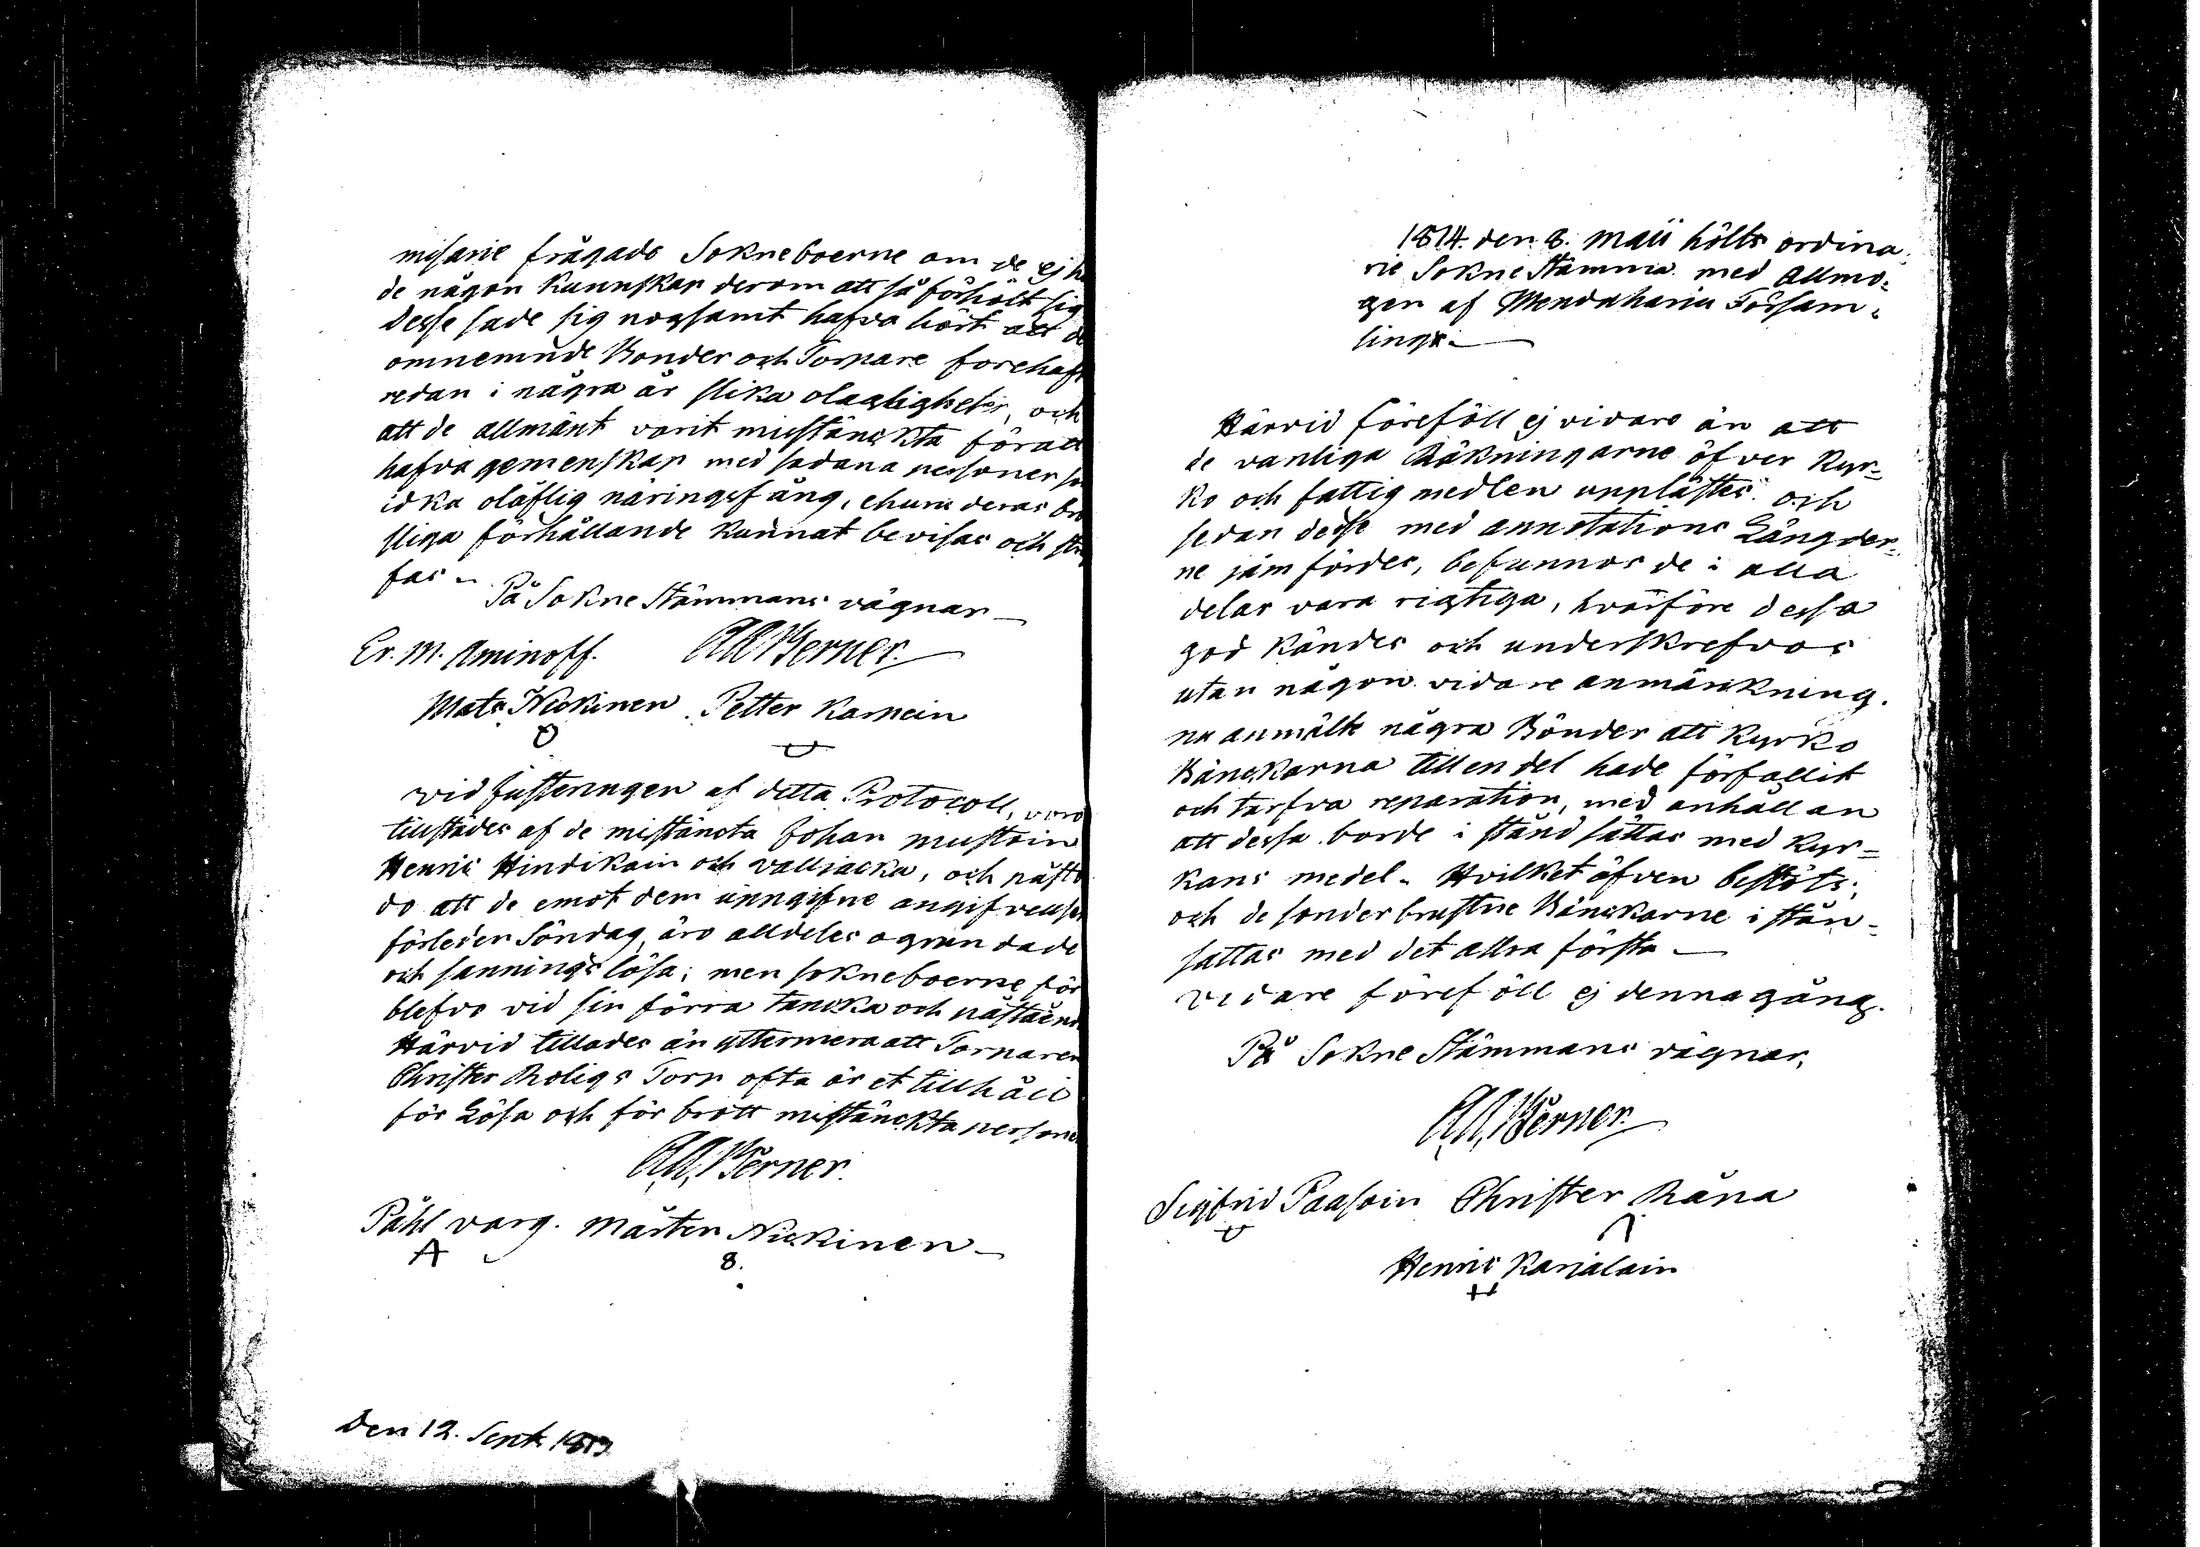 misarie frågade Sokneboerne om de ej ha
de någon kunnskap derom att så förhölt sig
Desse sade sig nogsamt hafva hört att de
omnemnde Bonder och Torpare forehaft
redan i några år slika olagligheter, och
att de allmänt varit misstänckta för att
hafva gemenskap med sådana personer so
idka olåflig näringsfång, ehuru deras bro
sliga förhållande kunnat bevisas och stra
fas
På Sokne Stämmans vägnar
Er. M. Aminoff. Werner.
Mats Nickinen Petter Karpein
vid Justeringen af detta Protocoll, voro
tillstädes af de misstäncta Johan Mustoin
Henric Hindikain och valljacka, och påsto
do att de emot dem uppgifne angifvelser
förleden Söndag, äro alldeles ogrundade
och sanningslösa; men sokneboerne för
blefvo vid sin förra tancka och påståend
Härvid tillades än yttermera att Torparen
Christer Roligs Torp ofta är et tillhåll
för Lösa och för brott misstänckta persone
Werner.
Påhl varg. Mårten Nickinen
A 8.
Den 12. Sept 1813
1814. den 8. Maii hölts ordina
rie Sokne Stämma med Allmo=
gen af Mendaharju Församm
linga.
Härvid föreföll ej vidare än att
de vanliga Räkningarne öfver Kyr=
ko och fattig medlen upplästes och
sedan desse med annotations Längder=
ne jämfördes, befunnos de i alla
delar vara rigtiga, hvarföre dessa
god kändes och underskrefvos
utan någon vidare anmärkning.
nu anmälte några Bönder att Kyrko
Bänckarna till en del hade förfallit
och tarfva reparation, med anhållan
att dessa borde i stånd sättas med Kyr=
kans medel. Hvilket äfven beslöts;
och de sönderbrustne Bänckarne i stån=
sattas med det allra första
vidare föreföll ej denna gång.
På Sokne Stämmans vägnar,
Werner.
Sigfrid Paasoin Christer Räna
Henric Karjalain